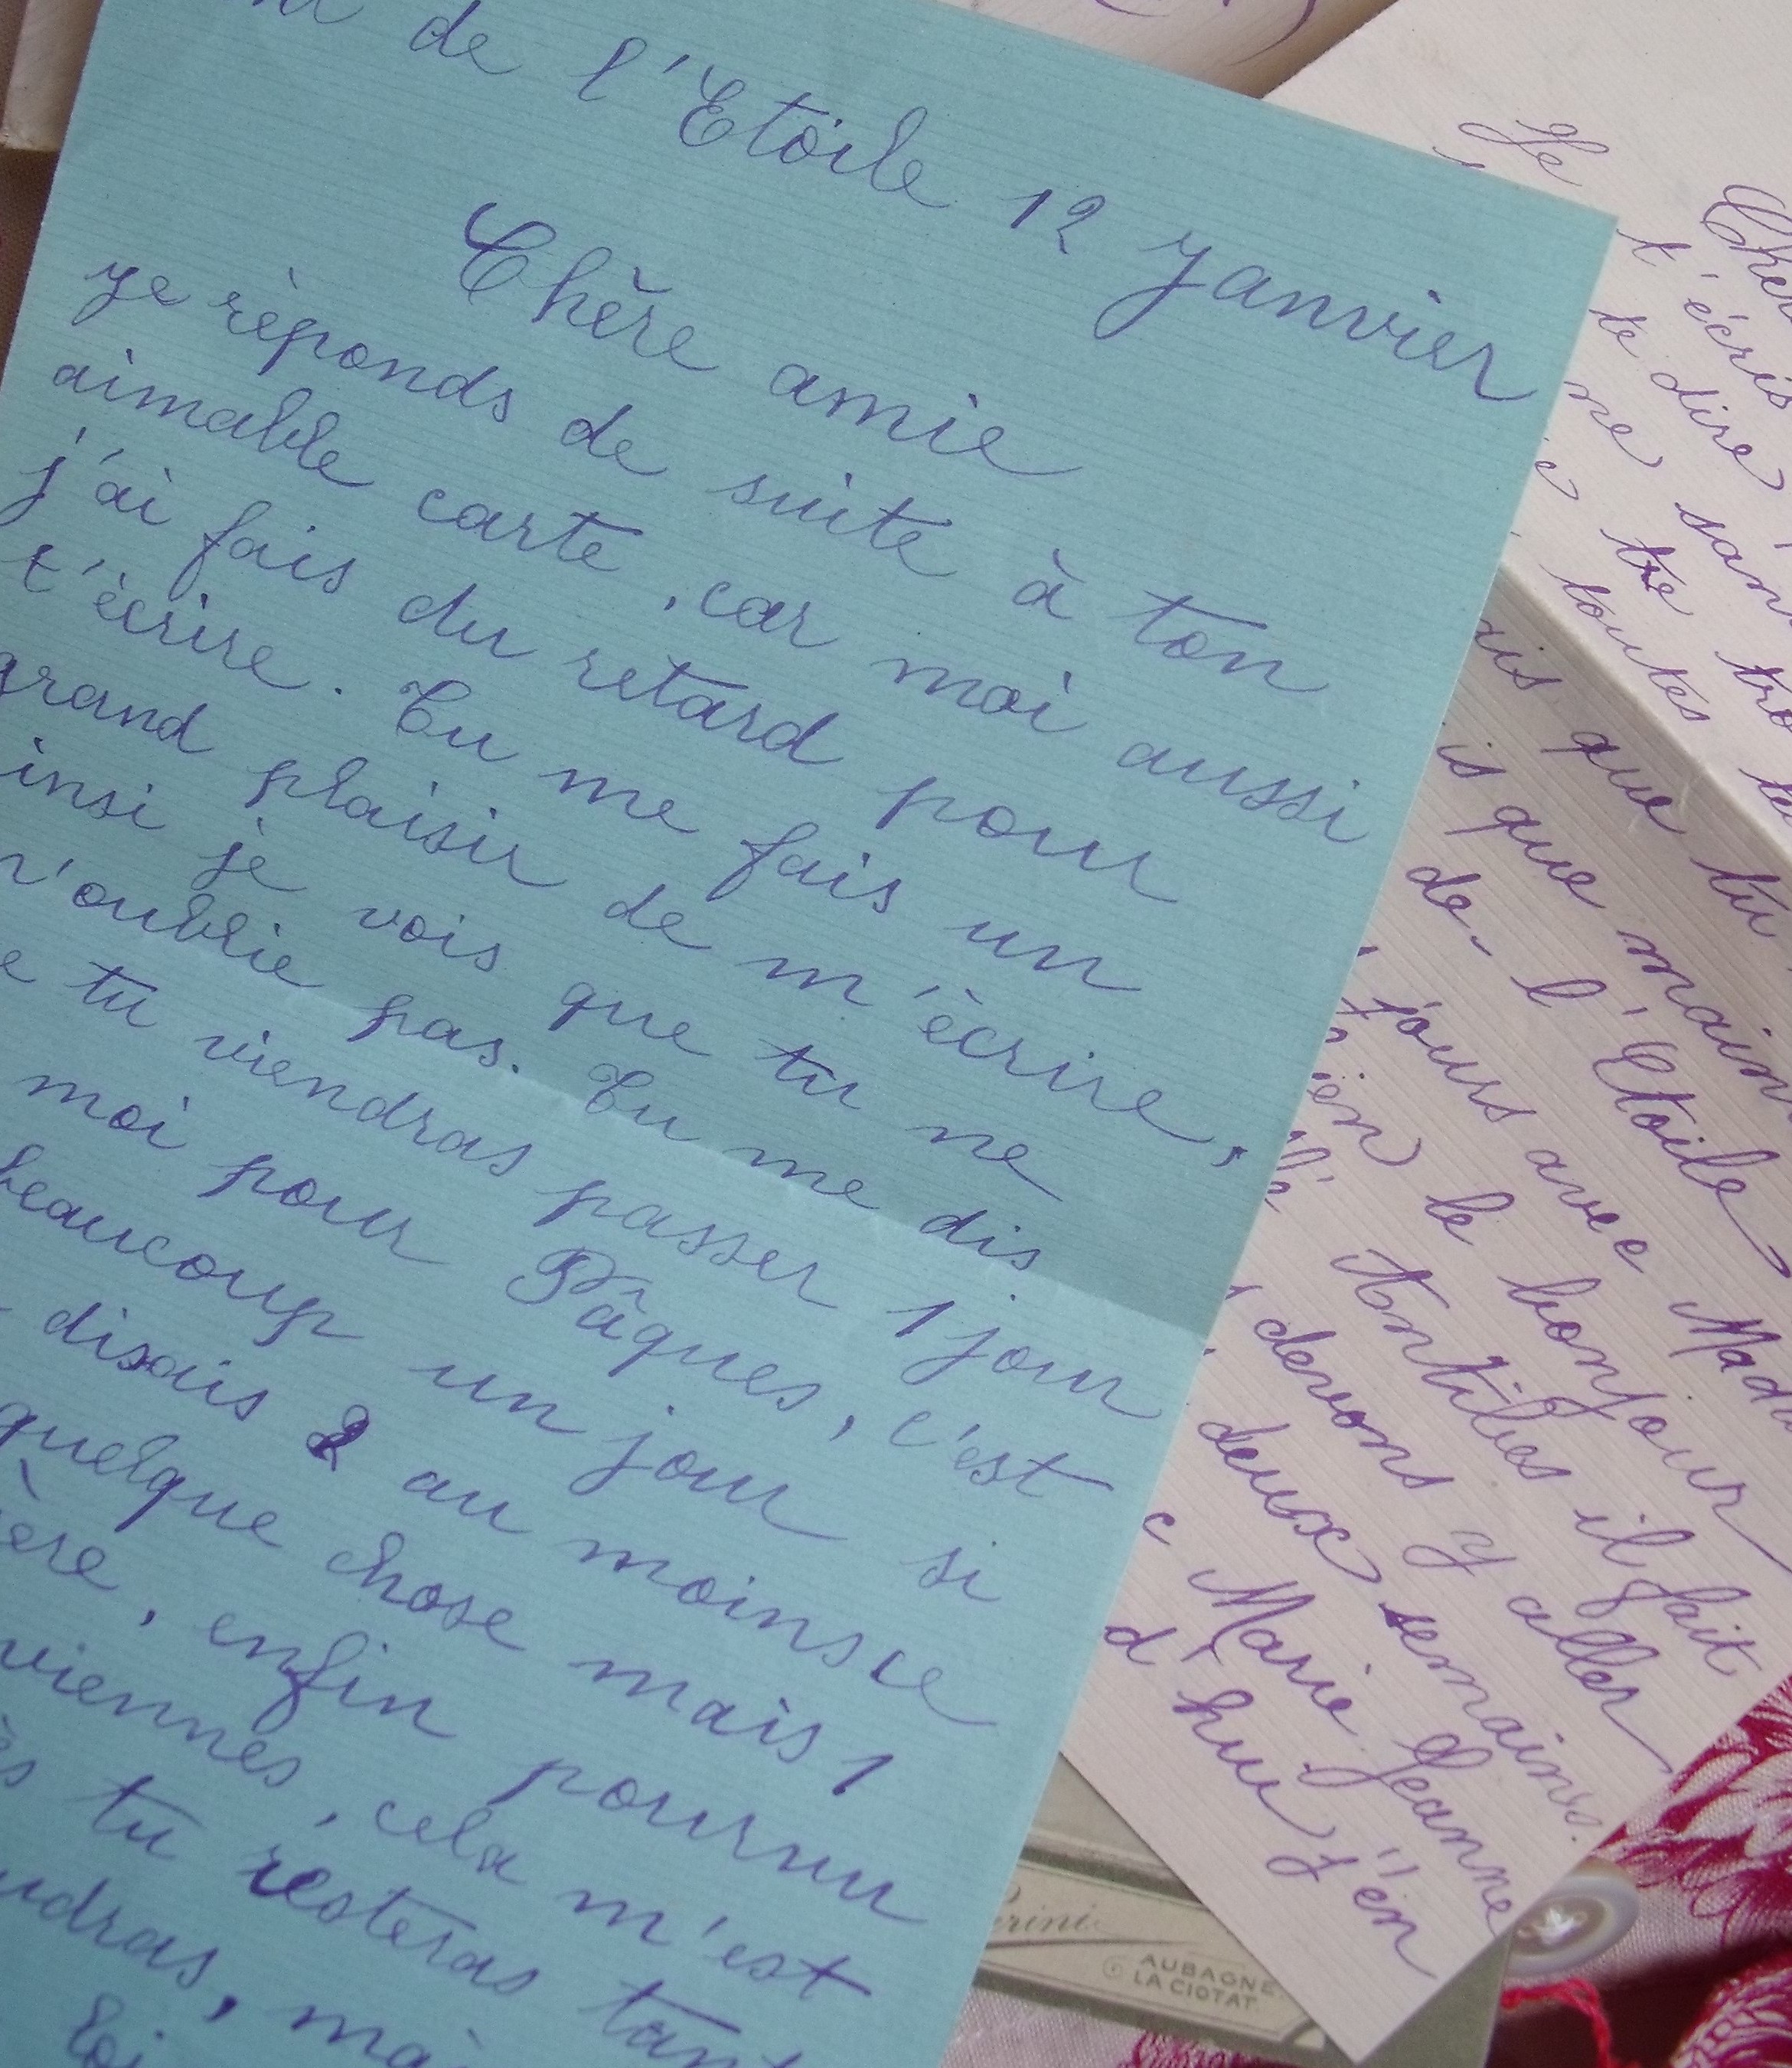 de l'Etoile 12 Janvier
Chère amie
je rèponds de suite à ton
aimable carte, car moi aussi
j'ai fais du retard pour
t'ècrire. Tu me fais un
grand plaisir de m'ècrire,
insi je vois que tu ne
n'oublie pas. Tu me dis
e tu viendras passer 1 jour
moi pour Pâques, c'est
beaucoup un jour si
disais 2 au moins ce
quelque chose mais 1
ère, enfin pourvu
viennes, cela m'est
ès tu resteras tant
udras, mà
Je
Cher
t'écris
te dire
me san
te tro
toutes
ais que tu
is que main
de l'Etoile
jours avec Mad
ien le bonjour
Antibes il fait
devons y aller
deux semaines.
c Marie Jeanne
d'hui j'en
AUBAGNE
LA CIOTAT